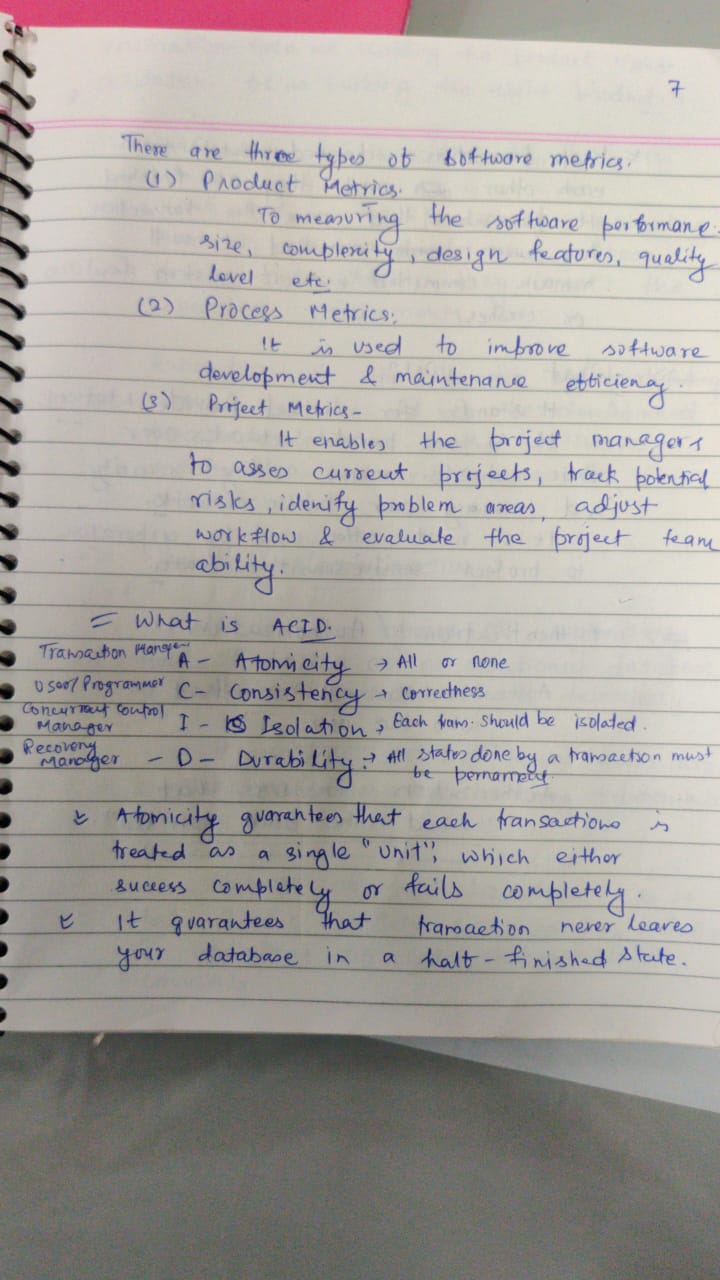 7
There are three types of software metrics.
(1) Product Metrics.
To measuring the software performane.
size, complexity, design features, quality
level etc.
(2) Process Metrics.
It is used to improve software
development & maintenance efficiency.
(3) Project Metrics -
It enables the project managers
to asses current projects, track potential
risks, idenify problem areas, adjust
workflow & evaluate the project team
ability.
= What is ACID.
Transaction Manager A - Atomicity → All or none
User/Programmer C - Consistency → correctness
Concurrent Control Manager I - Isolation → Each tran. should be isolated.
Recovery Manager - D - Durability → All states done by a transaction must
be pernamely.
Atomicity guarantees that each transactions is
treated as a single "unit", which either
success completely or fails completely.
It guarantees that transaction never leaves
your database in a half-finished state.